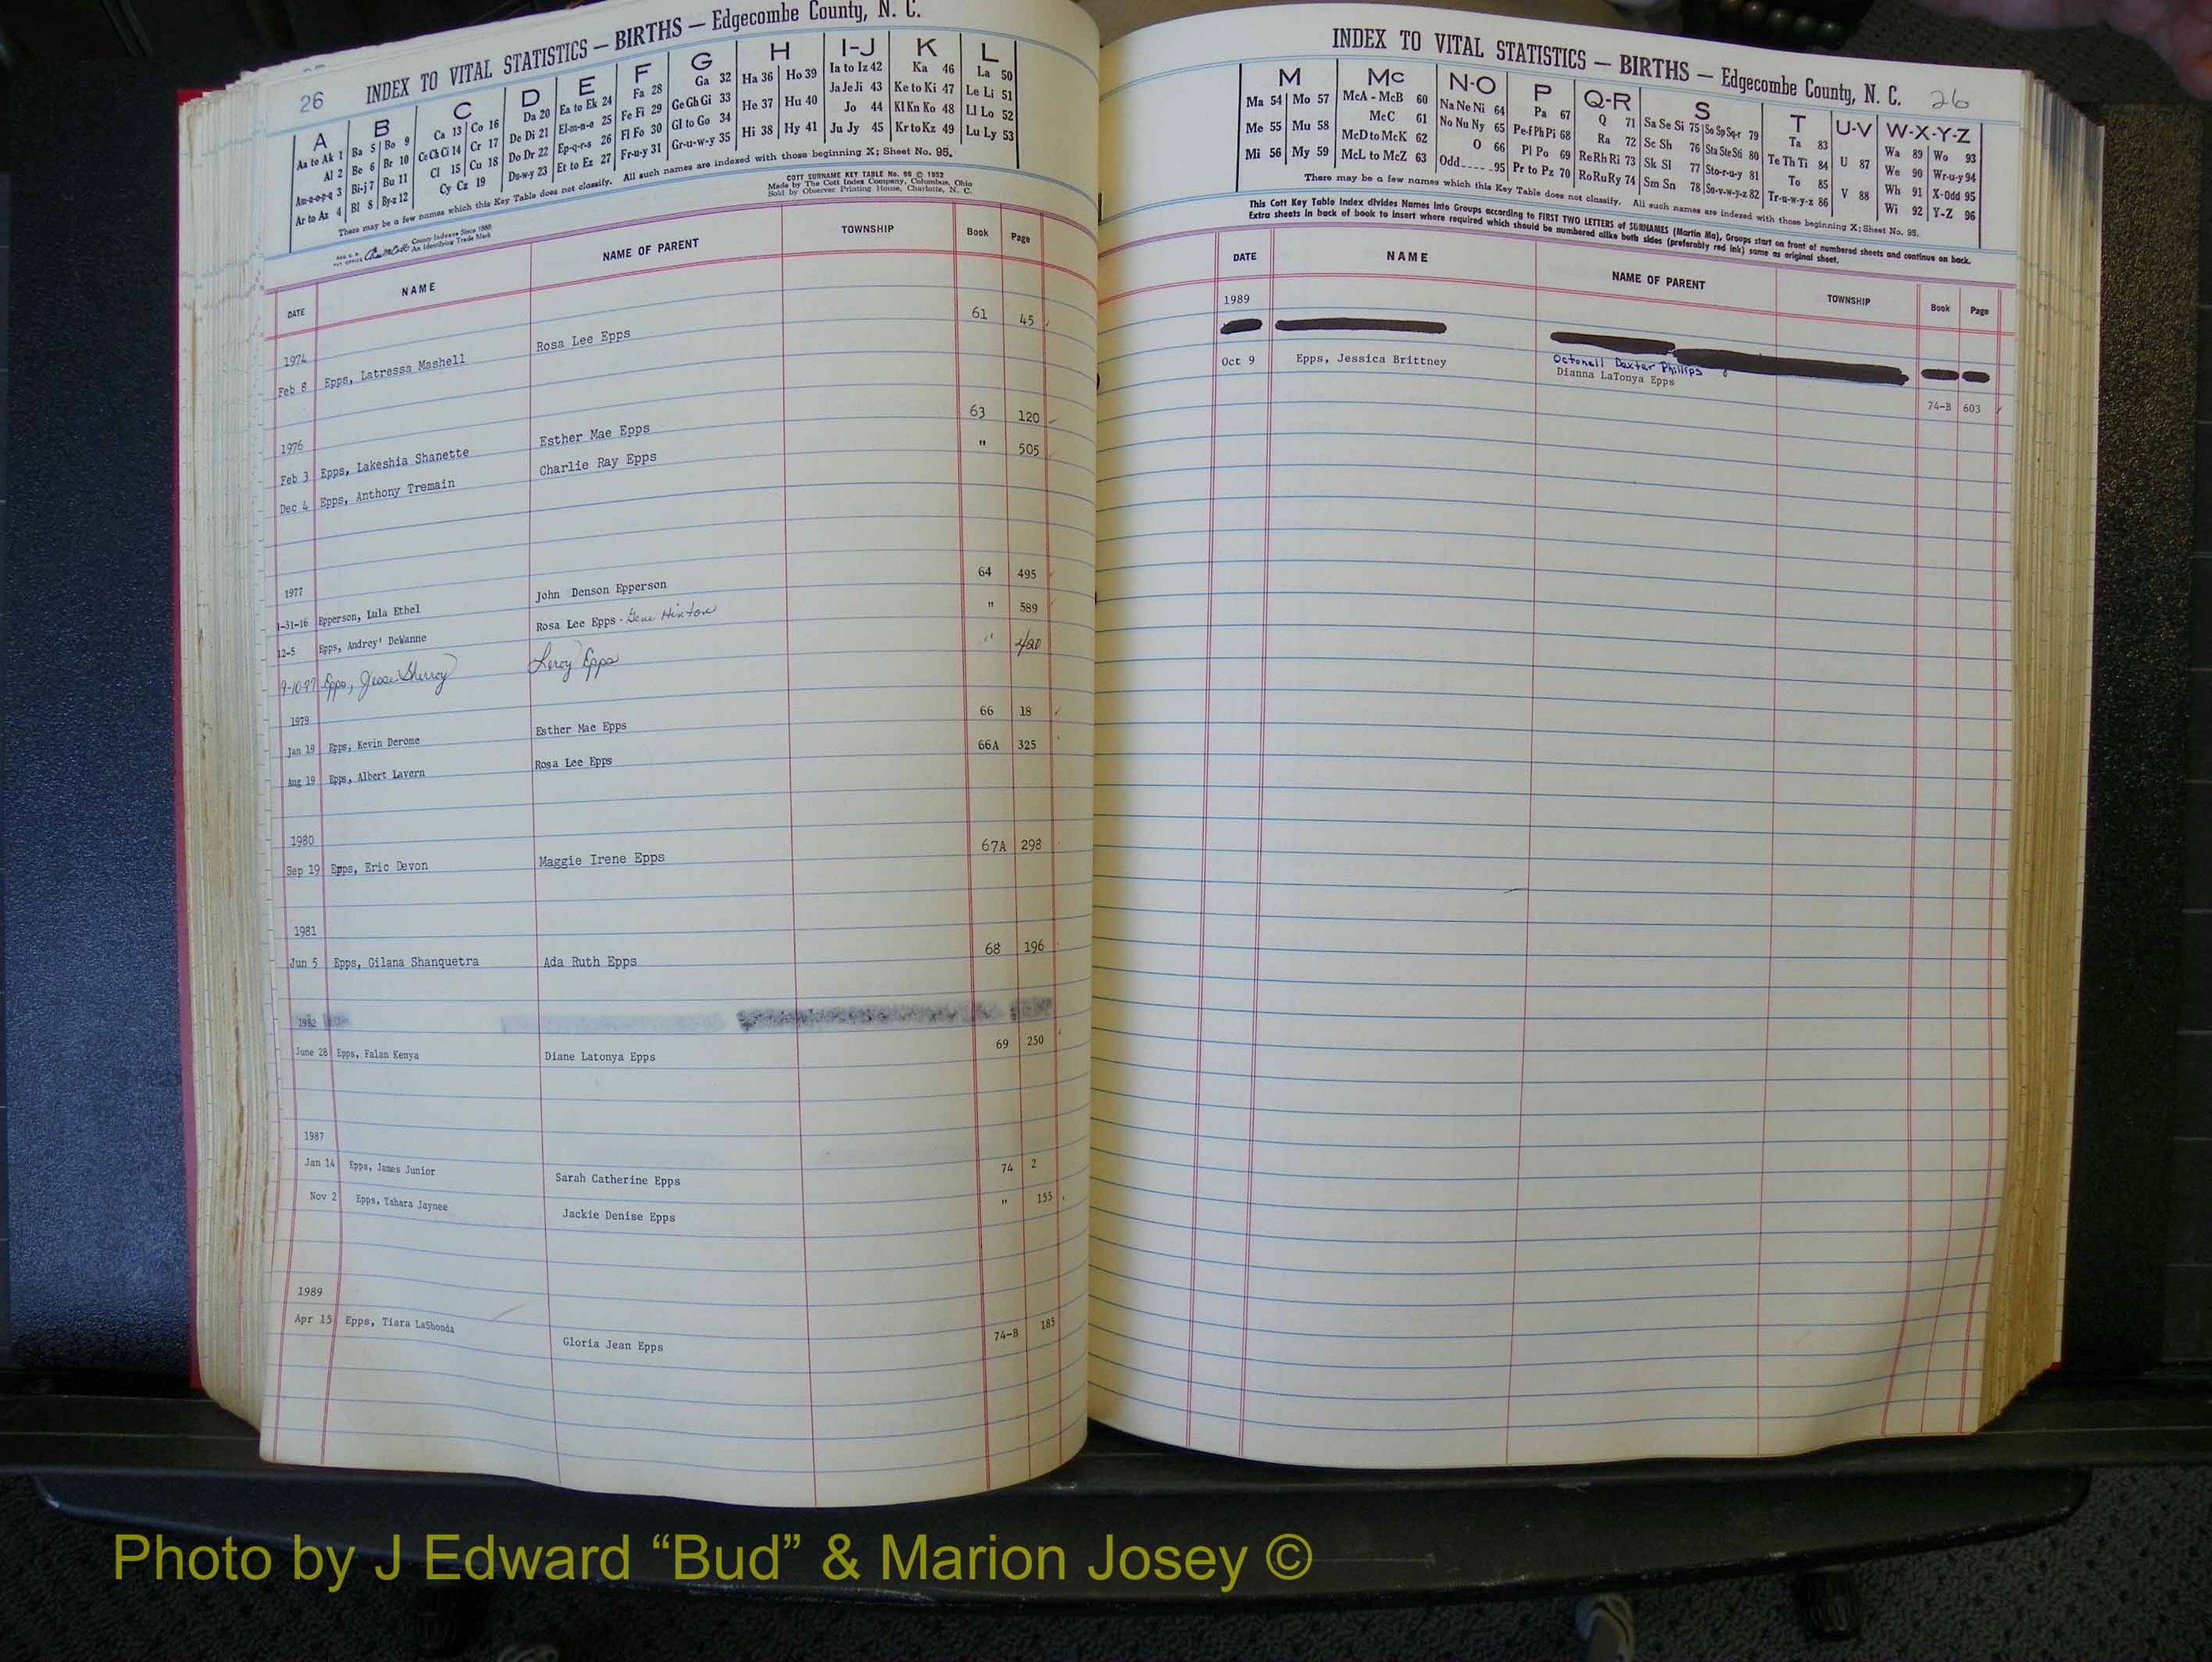 INDEX TO VITAL STATISTICS — BIRTHS — Edgecombe County, N. C.
26
A B C D E F G H I-J K L
Aa to Ak 1 Ba 5 Bo 9 Ca 13 Co 16 Da 20 Ea to Ek 24 Fa 28 Ga 32 Ha 36 Ho 39 Ia to Iz 42 Ka 46 La 50
Al 2 Be 6 Br 10 Ce Ch Ci 14 Cr 17 De Di 21 El-m-n-o 25 Fe Fi 29 Ge Gh Gi 33 He 37 Hu 40 Ja Je Ji 43 Ke to Ki 47 Le Li 51
Am-n-o-p-q 3 Bi-j 7 Bu 11 Cl 15 Cu 18 Do Dr 22 Ep-q-r-s 26 Fl Fo 30 Gl to Go 34 Hi 38 Hy 41 Jo 44 Kl Kn Ko 48 Ll Lo 52
Ar to Az 4 Bl 8 By-z 12 Cy Cz 19 Du-w-y 23 Et to Ez 27 Fr-u-y 31 Gr-u-w-y 35 Ju Jy 45 Kr to Kz 49 Lu Ly 53
There may be a few names which this Key Table does not classify. All such names are indexed with those beginning X; Sheet No. 95.
COTT SURNAME KEY TABLE No. 96 © 1952
Made by The Cott Index Company, Columbus, Ohio
Sold by Observer Printing House, Charlotte, N. C.
County Indexes Since 1888
An Identifying Trade Mark
DATE NAME NAME OF PARENT TOWNSHIP Book Page
1974
Feb 8 Epps, Latressa Mashell Rosa Lee Epps 61 45
1976
Feb 3 Epps, Lakeshia Shanette Esther Mae Epps 63 120
Dec 4 Epps, Anthony Tremain Charlie Ray Epps " 505
1977
1-31-16 Epperson, Lula Ethel John Denson Epperson 64 495
12-5 Epps, Andrey' DeWanne Rosa Lee Epps - Gene Hinton " 589
9-10-97 Epps, Jesse Sherroy Leroy Epps " 420
1979
Jan 19 Epps, Kevin Derome Esther Mae Epps 66 18
Aug 19 Epps, Albert Lavern Rosa Lee Epps 66A 325
1980
Sep 19 Epps, Eric Devon Maggie Irene Epps 67A 298
1981
Jun 5 Epps, Gilana Shanquetra Ada Ruth Epps 68 196
1982
June 28 Epps, Falan Kenya Diane Latonya Epps 69 250
1987
Jan 14 Epps, James Junior Sarah Catherine Epps 74 2
Nov 2 Epps, Tahara Jaynee Jackie Denise Epps " 155
1989
Apr 15 Epps, Tiara LaShonda Gloria Jean Epps 74-B 185
INDEX TO VITAL STATISTICS — BIRTHS — Edgecombe County, N. C. 26
M Mc N-O P Q-R S T U-V W-X-Y-Z
Ma 54 Mo 57 McA - McB 60 Na Ne Ni 64 Pa 67 Q 71 Sa Se Si 75 So Sp Sq-r 79 Ta 83 U 87 Wa 89 Wo 93
Me 55 Mu 58 McC 61 No Nu Ny 65 Pe-f Ph Pi 68 Ra 72 Sc Sh 76 Sta Ste Sti 80 Te Th Ti 84 V 88 We 90 Wr-u-y 94
Mi 56 My 59 McD to McK 62 O 66 Pl Po 69 Re Rh Ri 73 Sk Sl 77 Sto-r-u-y 81 To 85 Wh 91 X-Odd 95
McL to McZ 63 Odd 95 Pr to Pz 70 Ro Ru Ry 74 Sm Sn 78 Su-v-w-y-z 82 Tr-u-w-y-z 86 Wi 92 Y-Z 96
There may be a few names which this Key Table does not classify. All such names are indexed with those beginning X; Sheet No. 95.
This Cott Key Table Index divides Names into Groups according to FIRST TWO LETTERS of SURNAMES (Martin Ma), Groups start on front of numbered sheets and continue on back.
Extra sheets in back of book to insert where required which should be numbered alike both sides (preferably red ink) same as original sheet.
DATE NAME NAME OF PARENT TOWNSHIP Book Page
1989
Oct 9 Epps, Jessica Brittney Octonell Dexter Phillips
Dianna LaTonya Epps
74-B 603
Photo by J Edward “Bud” & Marion Josey ©